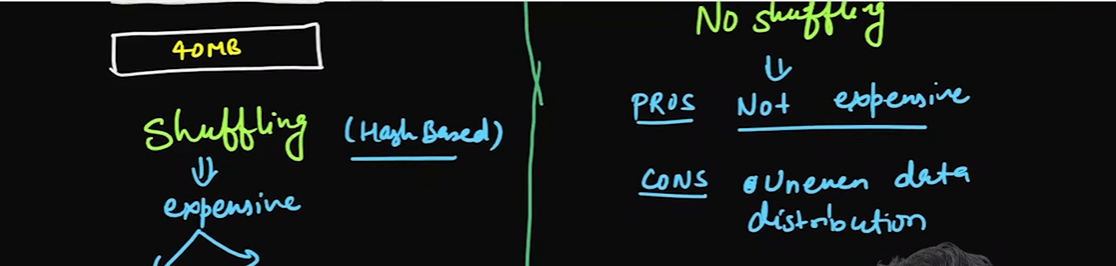 40MB
Shuffling (Hash Based)
expensive
No shuffling
PROS Not expensive
CONS Uneven data
distribution